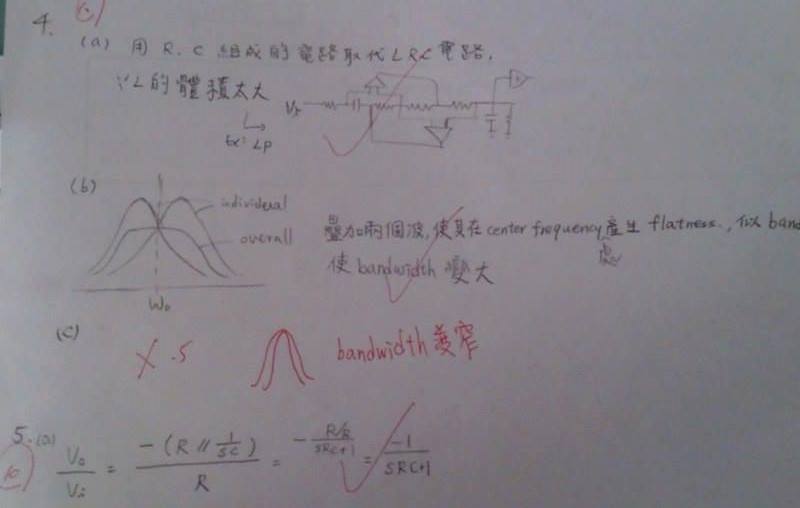 4.
(a) 用 R.C 組成的電路取代 LRC 電路,
∵L的體積太大
Ex: LP
(b)
individual
overall
W₀
疊加兩個波,使其在 center frequency 產生 flatness.,
處
使 bandwidth 變大
(c)
X .5 bandwidth 變窄
5. (a)
V₀/Vᵢ = -(R // 1/SC) / R = - (R/R)/(SRC+1) = -1/(SRC+1)